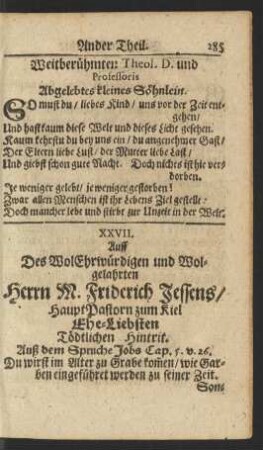 Ander Theil. 285
Weitberühmten Theol. D. und
Professoris
Abgelebtes kleines Söhnlein.
SO must du / liebes Kind / uns vor der Zeit ent-
gehen /
Und hast kaum diese Welt und dieses Licht gesehen.
Kaum kehrstu du bey uns ein / du angenehmer Gast /
Der Eltern liebe Lust / der Mutter liebe Last /
Und giebst schon gute Nacht. Doch nichts ist hie ver-
dorben.
Je weniger gelebt / je weniger gestorben!
Zwar allen Menschen ist ihr Lebens Ziel gestellt:
Doch mancher lebt und stirbt zur Unzeit in der Welt.
XXVII.
Auff
Des WolEhrwürdigen und Wol-
gelahrten
Herrn M. Friderich Jessens /
HauptPastorn zum Kiel
Ehe-Liebsten
Tödtlichen Hintrit.
Auß dem Spruche Jobs Cap. 5. v. 26.
Du wirst im Alter zu Grabe kom̃en / wie Gar-
ben eingeführet werden zu seiner Zeit.
Son-